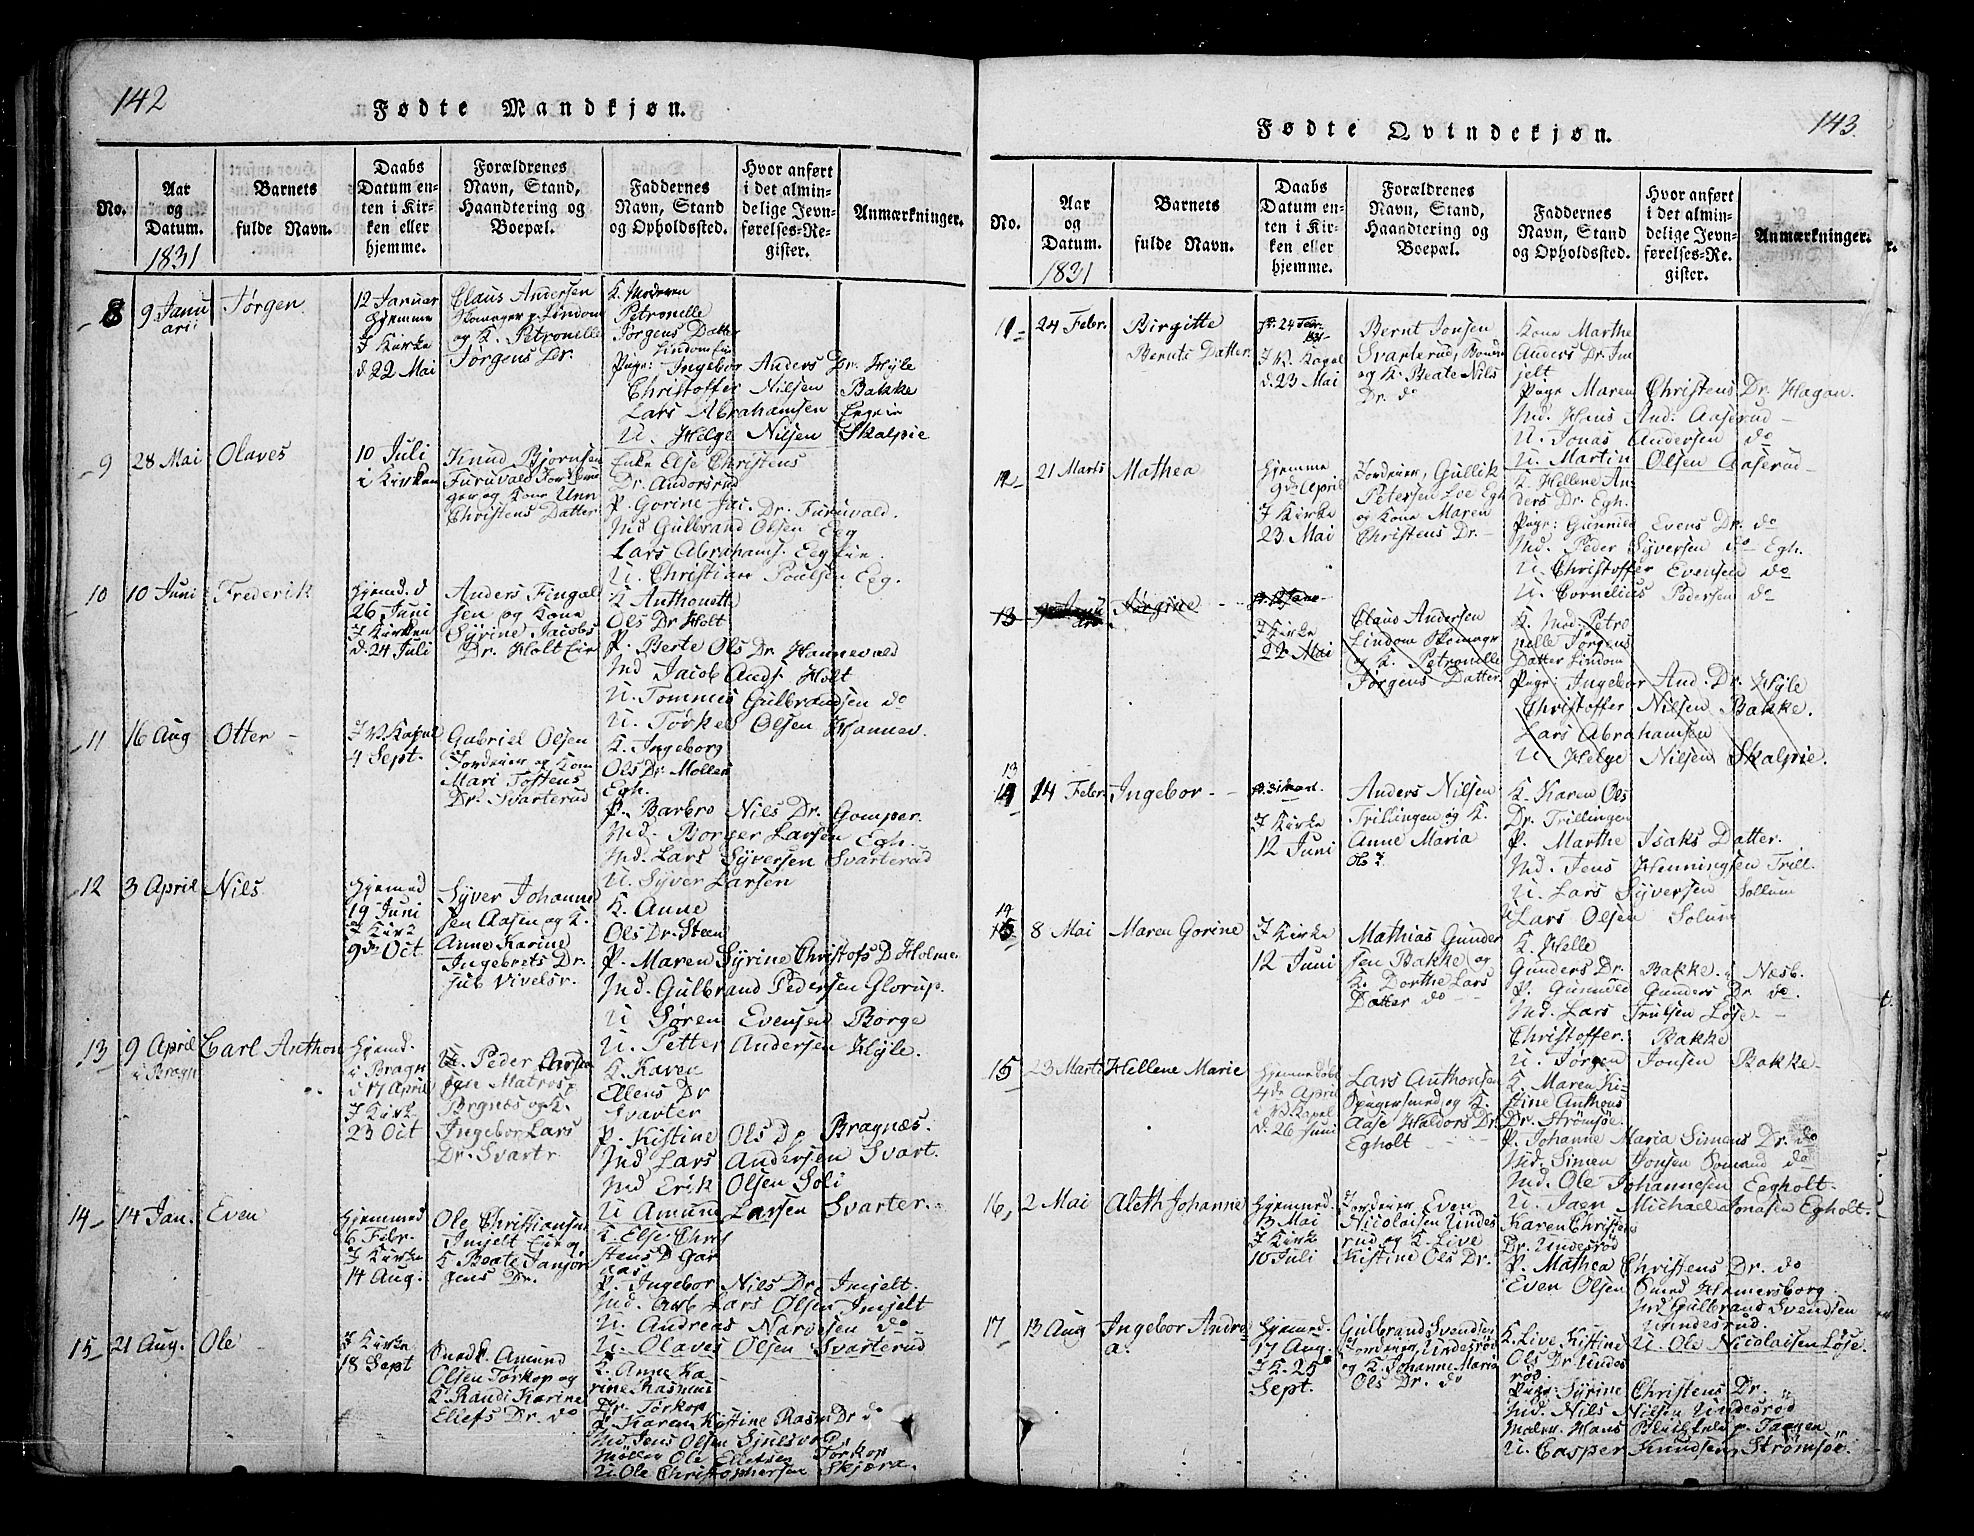 142
Fødte Mandkjøn.
No.
Aar
og
Datum.
1831
Barnets
fulde Navn.
Daabs
Datum en-
ten i Kir-
ken eller
hjemme.
Forældrenes
Navn, Stand,
Haandtering og
Boepæl.
Faddernes
Navn, Stand
og Opholdssted.
Hvor anført
i det almin-
delige Jevn-
førelses-Re-
gister.
Anmærkninger.
8
9 Janu
arii
Jørgen
12 Januar
hjemme
I Kirke
d. 22 Mai
Claus Andersen
Skomager p. Lindom
og K. Petronille
Jørgens Dr.
K. Moderen
Petronille
Jørgens Datter
Lindom Eie
Pige: Ingebor Anders Dr. Hÿle
Christoffer Nilsen Bakke
Lars Abrahamsen Egeie
U. Helge Nilsen Skalpie
9
28 Mai
Olaves
10 Juli
i Kirken
Knud Bjornsen
Furuvald
og Kone
Christens Datter
Enke Else Christens
Dr. Andorsrud
P. Gorine Jac. Dr. Furuvald.
Md Gulbrand Olsen Eeg
Lars Abrahams. Eegeie
U. Christian Poulsen Eeg.
10
10 Juni
Frederik
hjemd. d
26 Juni
I Kirken
d. 24 Juli
Anders Fingal
sen og Kone
Syrine Jacobs
Dr. Holt Eie
K Anthonette
Ols Dr Holt
P. Berte Ols Dr. Hannevald
Md Jacob Ands Holt
U. Tommes Gulbrandsen do
U. Tørkel Olsen Hannev.
11
16 Aug
Otter
4 Sept.
Gabriel Olsen
Mari Tostens
Dr. Svarterud
K. Ingeborg
Ols Dr. Mollen
Egh.
P. Barbro Nils Dr. Gomper.
Md. Borger Larsen Egh.
Md. Lars Syversen Svarterud
U. Syver Larsen
12
3 April
Nils
hjemmed
19 Juni
I Kirk
9de Oct
Syver Johanne
sen Aasen og K.
Anne Karine
Ingebrets Dr.
K. Anne
Ols Dr. Steen
P. Maren Syrine Christofs D Holme.
Md. Gulbrand Pedersen Glorup.
U Søren Evensen Borge
U. Petter Andersen Hÿle.
13
9 April
i Bragn
Carl Anthon
hjemd.
i Bragn
17 April
I Kirk
23 Oct
Peder
Matros p
Brgnæs og K.
Ingebor Lars
Dr. Svartr
K. Karen
Ellens Dr
Svarter
P. Kistine Ols D p Bragnæs.
Md Lars Andersen Svart.
Md Erik Olsen Soli
U Amund Larsen Svarter.
14
14 Jan.
Even
hjemmed
6 Febr.
I Kirke
14 Aug.
Ole Christiansen
Imjelt Eie og
K Beate Janjør
gens Dr.
K Else Chris
tens D Gar
aas
P. Ingebor Nils Dr. Imjelt.
Md. Lars Olsen Imjelt
U. Andreas Narvesen do
U. Olaves Olsen Svarterud
15
21 Aug.
Ole
I Kirke
18 Sept
Snedk. Amund
Olsen Torkop og
K Randi Karine
Ellefs Dr. do
K. Anne Ka
rine Rasmus
Dr. Torkop
P. Karen Kistine Rasm Dr do
Md Jens Olsen
Møller Ole Ellefsen Torkop
U. Ole Christophersen Skjæra.
143.
Fødte Qvindekjøn.
No.
Aar
og
Datum.
1831
Barnets
fulde Navn.
Daabs
Datum en-
ten i Kir-
ken eller
hjemme.
Forældrenes
Navn, Stand,
Haandtering og
Boepæl.
Faddernes
Navn, Stand
og Opholdssted.
Hvor anført
i det almin-
delige Jevn-
førelses-Re-
gister.
Anmærkninger.
11
24 Febr.
Birgitte
Bernts Datter
d. 23 Mai
Bernt Jonsen
Svarterud,
og K. Beate Nils
Dr. do
Kone Marthe
Anders Dr. Im
jelt
Pige Maren Christens Dr. Hagan.
Md. Hans And. Aaserud
U. Jonas Andersen do
U. Martin Olsen Aaserud
12
21 Marts
Mathea
hjemme
9de April
I Kirke
23 Mai
Gullik
Petersen Loe Egh
og Kone Maren
Christens Dr.
K. Hellene An
ders Dr. Egh.
Pige: Gunnild Evens Dr. do
Md. Peder Syversen do Egh.
U. Christoffer Evensen do
U. Cornelius Pedersen do
13
Jørgine
I Kirke
22 Mai
Claus Andersen
Lindom Skomager
og K. Petronille
Jørgens Datter
K. Mod. Petro
nelle Jørgens
Datter Lindom
Pige: Ingebor And. Dr. Hÿle
Christoffer Nilsen Bakke.
Lars Abrahamsen
U Helge Nilsen Skalpie.
13
14 Febr
Ingebor
I Kirke
12 Juni
Anders Nilsen
Trillingen og K.
Anne Maria
K. Karen Ols
Dr. Trillingen
P. Marthe Isaks Datter.
Md. Jens Henningsen Trill.
U. Lars Syversen Sollum
U Lars Olsen Solum
14
8 Mai
Maren Gorine
I Kirke
12 Juni
Mathias Gunder
sen Bakke og
K. Dorthe Lars
Datter do
K. Helle
Gunders Dr. Bakke i Næsb.
P. Gunnild Gunders Dr do.
Md. Lars Trulsen Løse
Christoffer Bakke
U. Jørgen Jonsen Bakke
15
23 Marti
Hellene Marie
hjemmedøbt
4de April
d. 26 Juni
Lars Anthonsen
og K.
Aase Haldors Dr.
Egholt
K. Maren Ki-
stine Anthons
Dr. Strømsøe
P. Johanne Maria Simens Dr. do
Md. Simen Jonsen Somand do
Md. Ole Johannesen Eegholt.
U. Michael Jonasen Egholt.
16
2 Mai
Aleth Johanne
hjemmed.
13 Mai
I Kirke
10 Juli
Even
Nicolaisen Undes
rud og K. Live
Kistine Ols Dr.
Karen Christens
Dr. Undesrød
P. Mathea Christens Dr. do
Even Olsen Smed Hamersborg
Md Gulbrand Svendsen
Undesrud.
U. Ole Nicolaisen Løse.
17
13 Aug
Ingebor Andre
a.
hjemmed.
17 Aug.
I K. 25
Sept.
Gulbrand Svendsen
Undesrød
og K. Johanne Maria
Ols Dr. do
K. Live Kistine
Ols Dr. Undes
rød.
Pige Syrine Christens Dr. "
Md. Nils Nilsen Undesrød
Maler Hans
U. Casper Knudsen, Strømsøe.